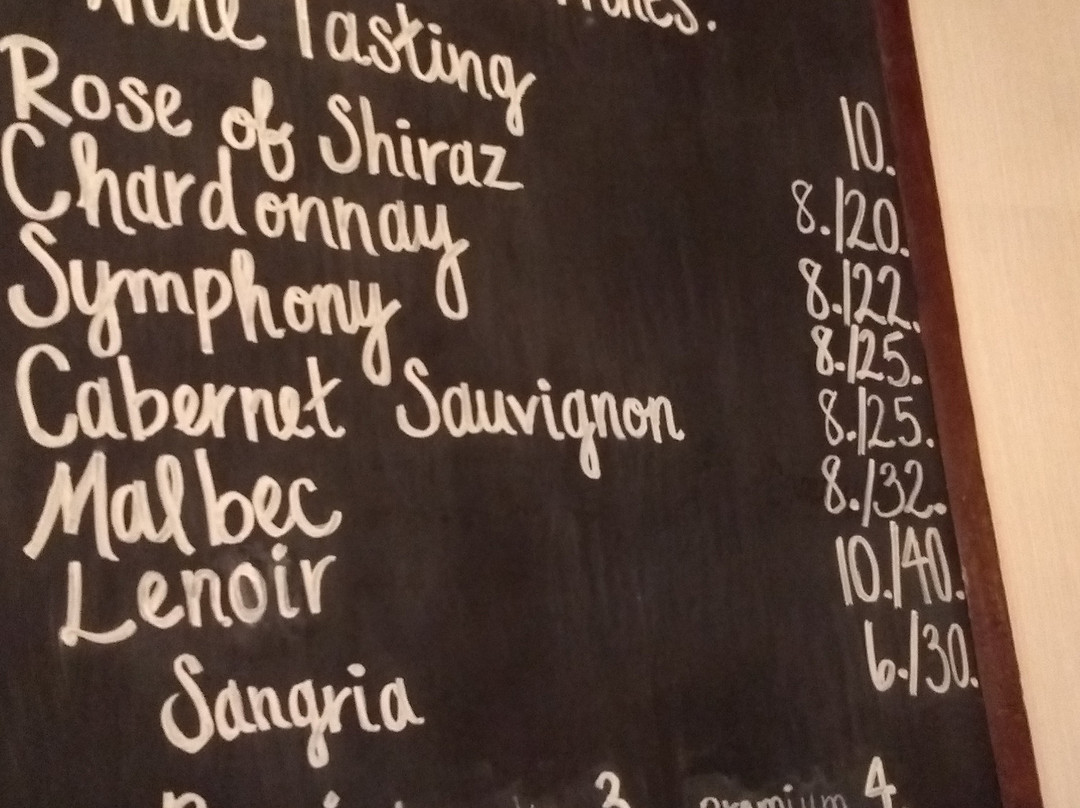 Wine Tasting 10.
Rose of Shiraz 8./20.
Chardonnay 8./22.
Symphony 8./25.
Cabernet Sauvignon 8./25.
Malbec 8./32.
Lenoir 10./40.
Sangria 6./30.
3 premium 4